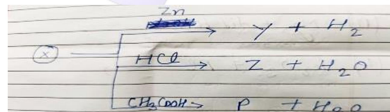 Zn
Y + H2
X HCl Z + H2O
CH3COOH P + H2O